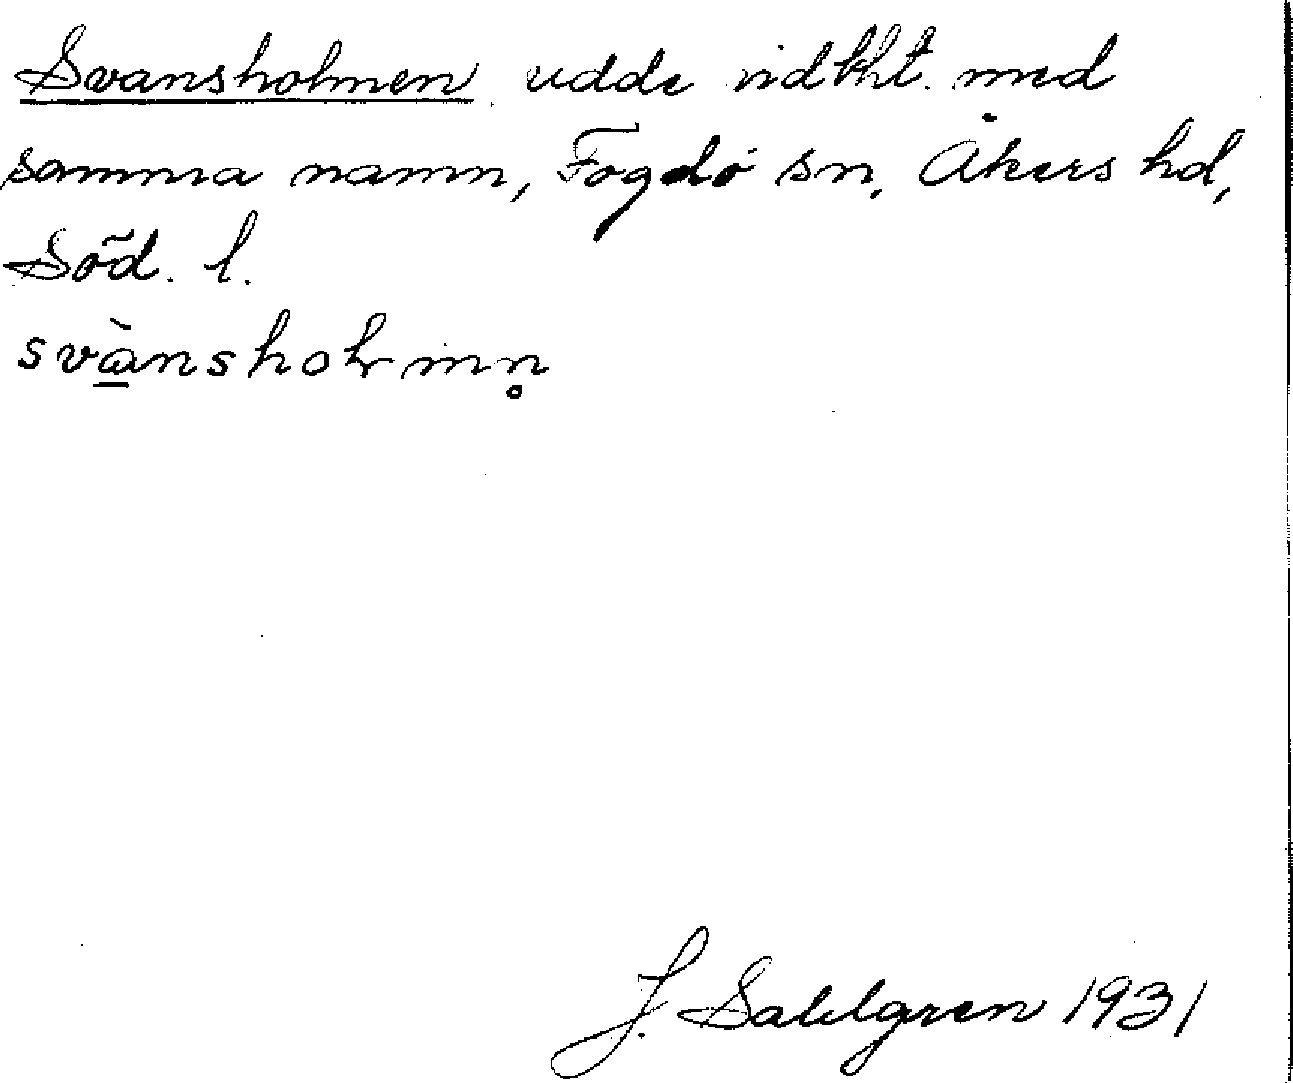 Svansholmen udde vid lht. med
samma namn, Fogdö sn, Åkers hd,
Söd. l.
svànsholmn̥
J. Sahlgren 1931